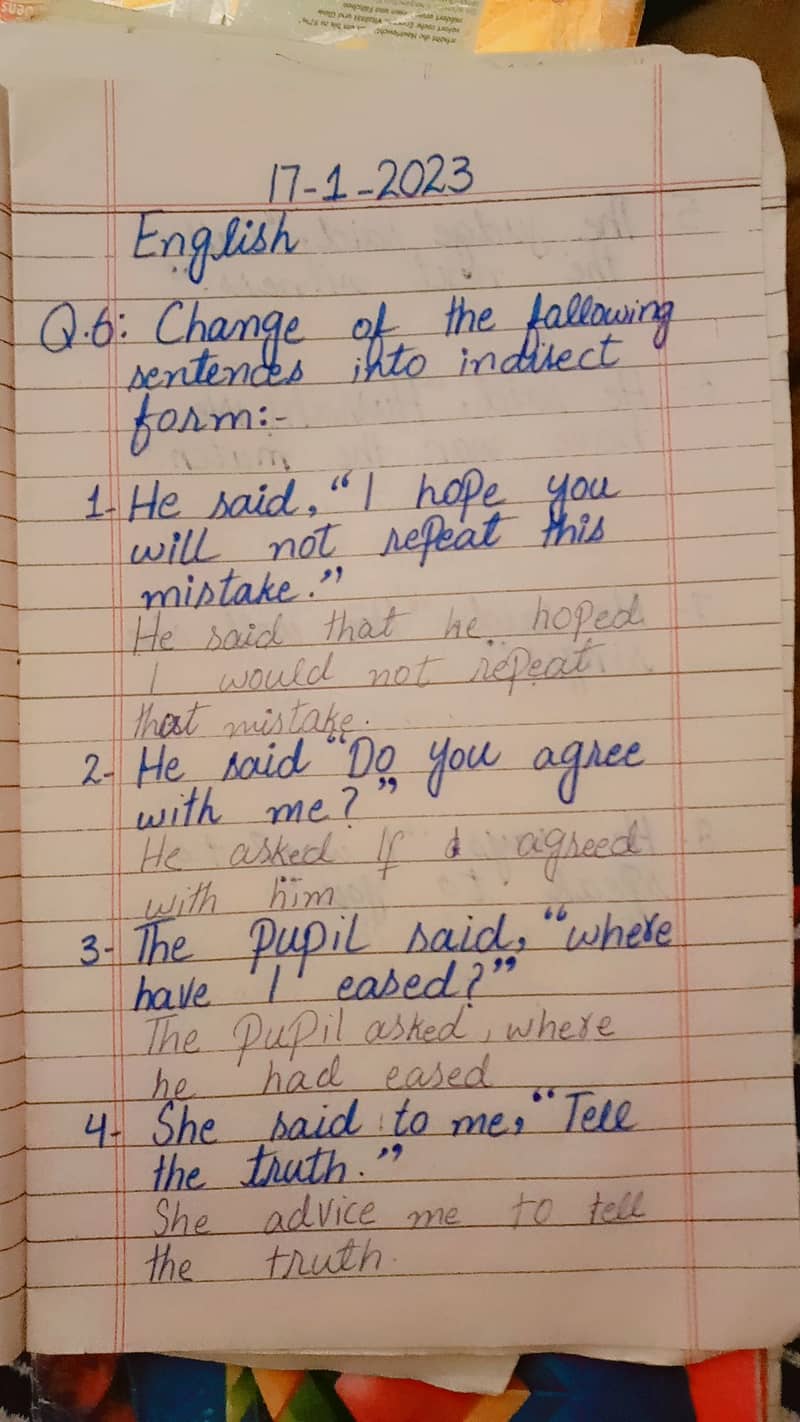 17-1-2023
English
Q.6: Change of the fallowing
sentences into indirect
form:-
1- He said, "I hope you
will not repeat this
mistake."
He said that he hoped
I would not repeat
that mistake.
2- He said "Do you agree
with me?"
He asked If I agreed
with him
3- The pupil said, "where
have I eased?"
The pupil asked, where
he had eased
4- She said to me, "Tell
the truth."
She advice me to tell
the truth.